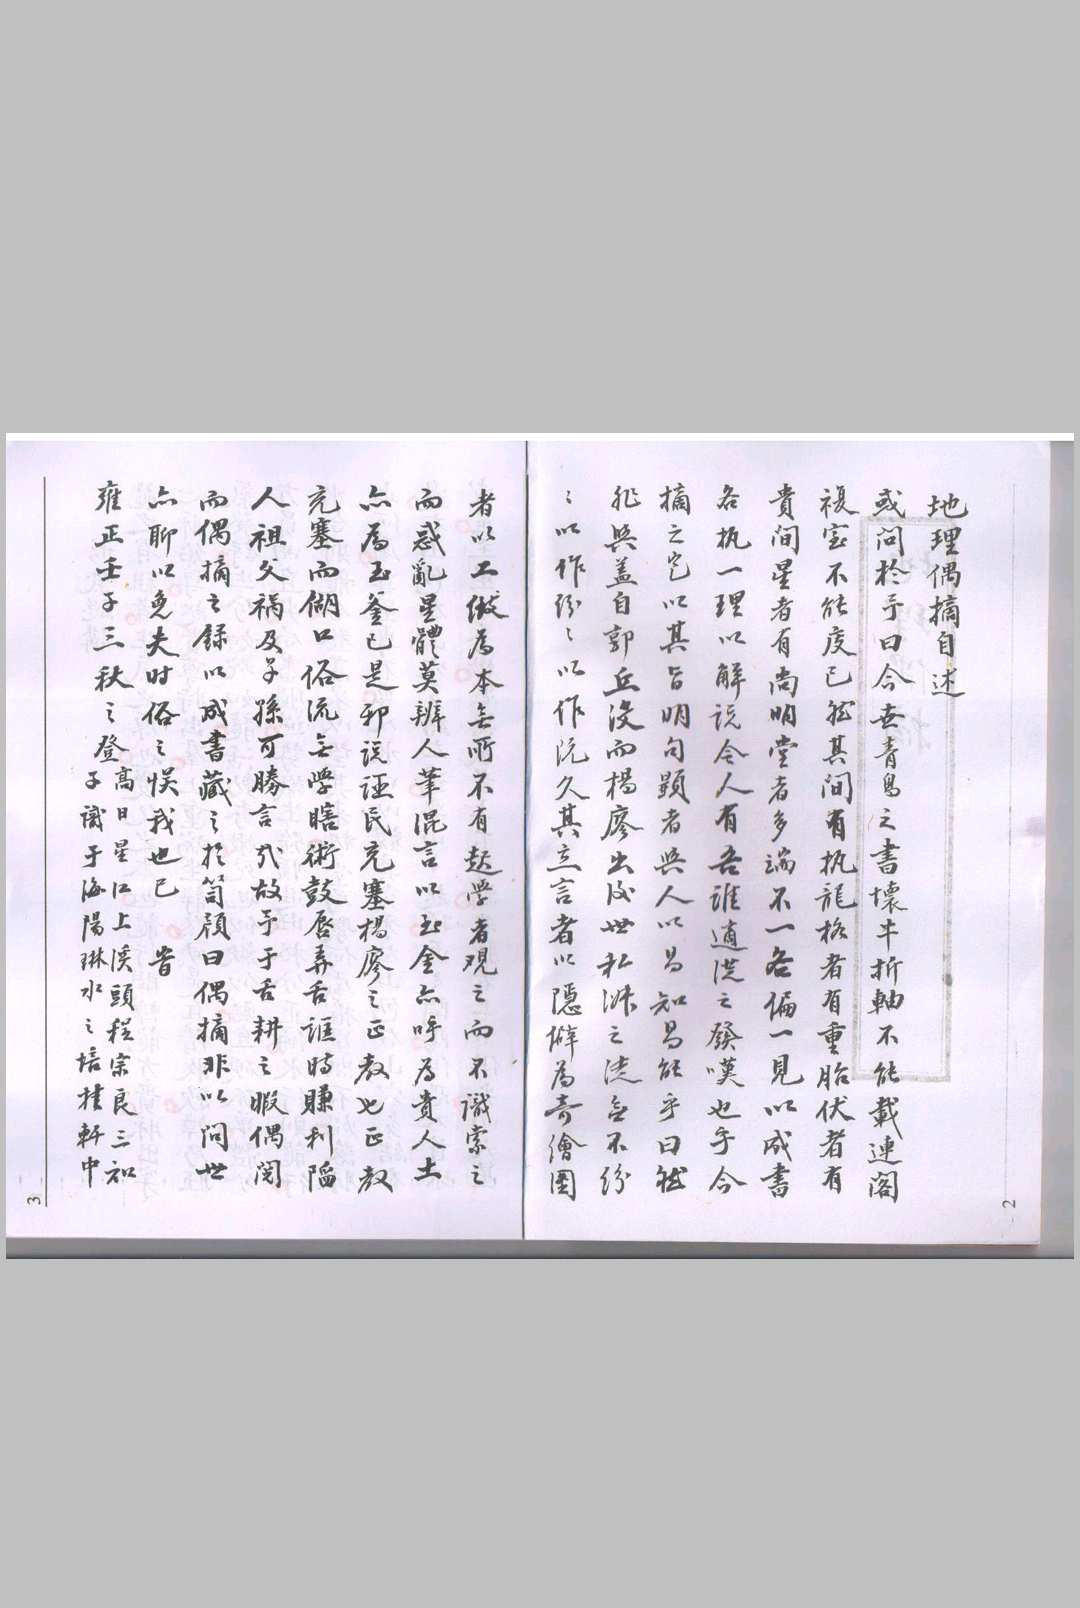 地理偶摘自述
或問於予曰今世青烏之書壞牛折軸不能載連閣
複室不能度已然其間有执龍格者有重胎伏者有
貴間星者有尚明堂者多端不一各偏一見以成書
各执一理以解説令人有吾誰適從之發嘆也乎今
摘之它以其旨明句顕者與人以易知易能乎曰然
非與蓋自郭丘没而楊廖出後世私淑之徒無不紛
〻以作紛〻以作沉久其立言者以隱僻為奇繪圖
者以工緻為本無所不有趍學者观之而不識索之
而惑亂星體莫辨人筆混言以玉金亦呼為貴人土
亦為玉釜已是邪説誣民充塞楊廖之正教也正教
充塞而餬口俗流無學瞎術鼓唇弄舌誑時賺利陷
人祖父禍及子孫可勝言哉故予于舌耕之暇偶閲
而偶摘之録以成書藏之於笥顔曰偶摘非以問世
亦聊以免夫时俗之悮我也已 旹
雍正壬子三秋之登高日星江上溪頭程宗良三知
子識于海陽琳水之培桂軒中
2
3